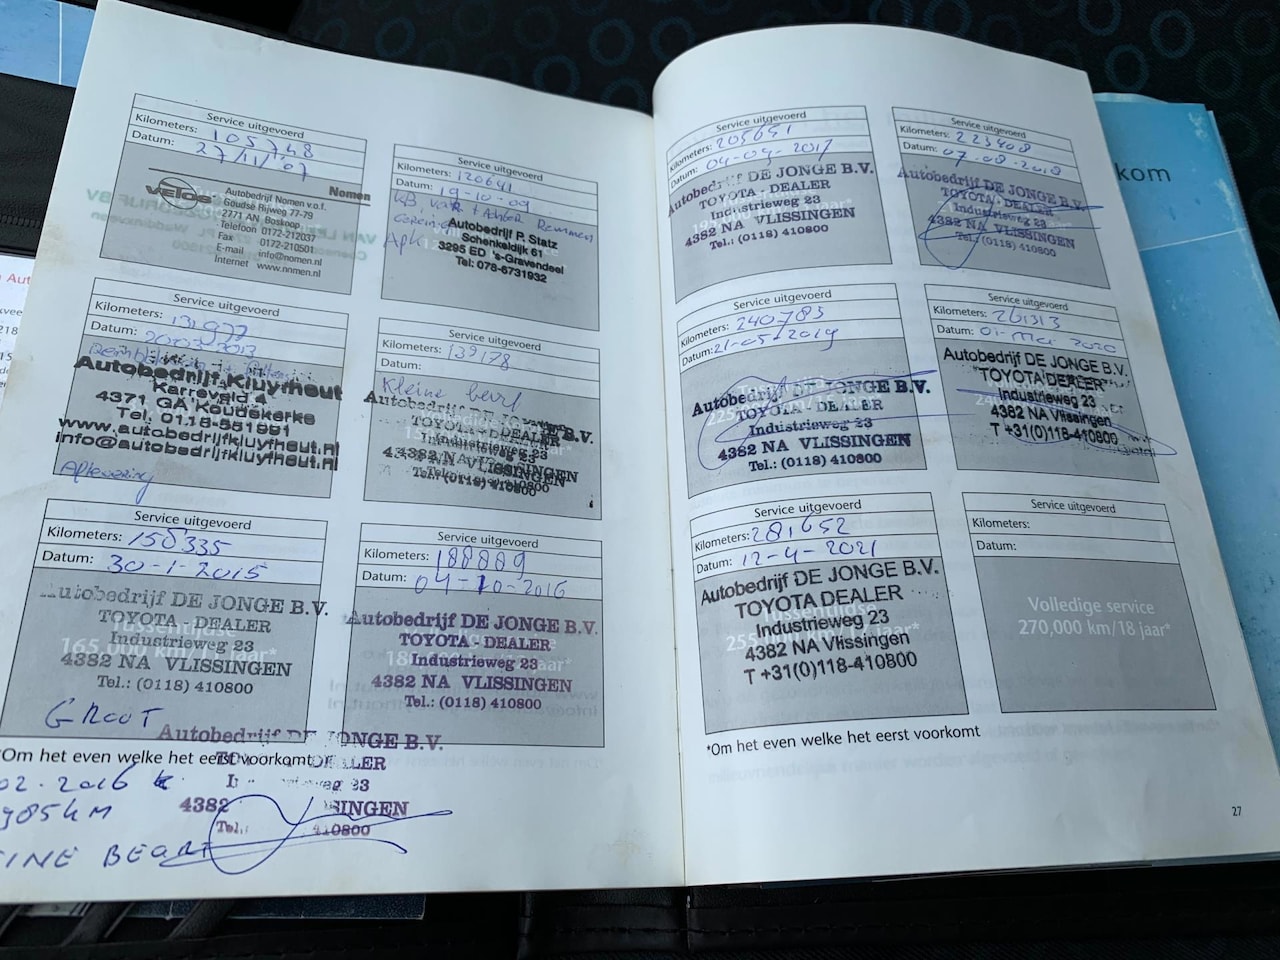 Service uitgevoerd
Kilometers: 105748
Datum: 27/11/07
VELOS
Nomen
Autobedrijf Nomen v.o.f.
Goudse Rijweg 77-79
2771 AN Boskoop
Telefoon 0172-212037
Fax 0172-210501
E-mail info@nomen.nl
Internet www.nomen.nl
Service uitgevoerd
Kilometers: 120641
Datum: 19-10-09
Remmen
APK
Autobedrijf P. Statz
Schenkeldijk 61
3295 ED 's-Gravendeel
Tel: 078-6731932
Service uitgevoerd
Kilometers: 131977
Datum:
Autobedrijf Kluyfhout
Karreveld 4
4371 GA Koudekerke
Tel. 0118-551991
www.autobedrijfkluyfhout.nl
info@autobedrijfkluyfhout.nl
Aflevering
Service uitgevoerd
Kilometers: 139178
Datum:
Kleine beurt
Autobedrijf DE JONGE B.V.
TOYOTA - DEALER
Industrieweg 23
4382 NA VLISSINGEN
Tel.: (0118) 410800
Service uitgevoerd
Kilometers: 150335
Datum: 30-1-2015
Autobedrijf DE JONGE B.V.
TOYOTA - DEALER
Tussentijdse
Industrieweg 23
165.000 km/11 jaar*
4382 NA VLISSINGEN
Tel.: (0118) 410800
GROOT
Service uitgevoerd
Kilometers: 188889
Datum: 04-10-2016
Autobedrijf DE JONGE B.V.
TOYOTA - DEALER
Industrieweg 23
4382 NA VLISSINGEN
Tel.: (0118) 410800
*Om het even welke het eerst voorkomt
Autobedrijf DE JONGE B.V.
TOYOTA - DEALER
4382 VLISSINGEN
Tel. 410800
02.2016
985 KM
INE BEURT
Service uitgevoerd
Kilometers: 205651
Datum: 04-09-2017
Autobedrijf DE JONGE B.V.
TOYOTA - DEALER
Industrieweg 23
4382 NA VLISSINGEN
Tel.: (0118) 410800
Service uitgevoerd
Kilometers: 223408
Datum: 07-08-2018
Autobedrijf DE JONGE B.V.
TOYOTA - DEALER
Industrieweg 23
4382 NA VLISSINGEN
Tel.: (0118) 410800
Service uitgevoerd
Kilometers: 240783
Datum: 21-05-2019
Autobedrijf DE JONGE B.V.
TOYOTA - DEALER
Industrieweg 23
4382 NA VLISSINGEN
Tel.: (0118) 410800
Service uitgevoerd
Kilometers: 261313
Datum: 01-mei 2020
Autobedrijf DE JONGE B.V.
TOYOTA DEALER
Industrieweg 23
4382 NA Vlissingen
T +31(0)118-410800
Service uitgevoerd
Kilometers: 281652
Datum: 12-4-2021
Autobedrijf DE JONGE B.V.
TOYOTA DEALER
Tussentijdse
Industrieweg 23
255.000 km/17 jaar*
4382 NA Vlissingen
T +31(0)118-410800
Service uitgevoerd
Kilometers:
Datum:
Volledige service
270,000 km/18 jaar*
*Om het even welke het eerst voorkomt
27
kom